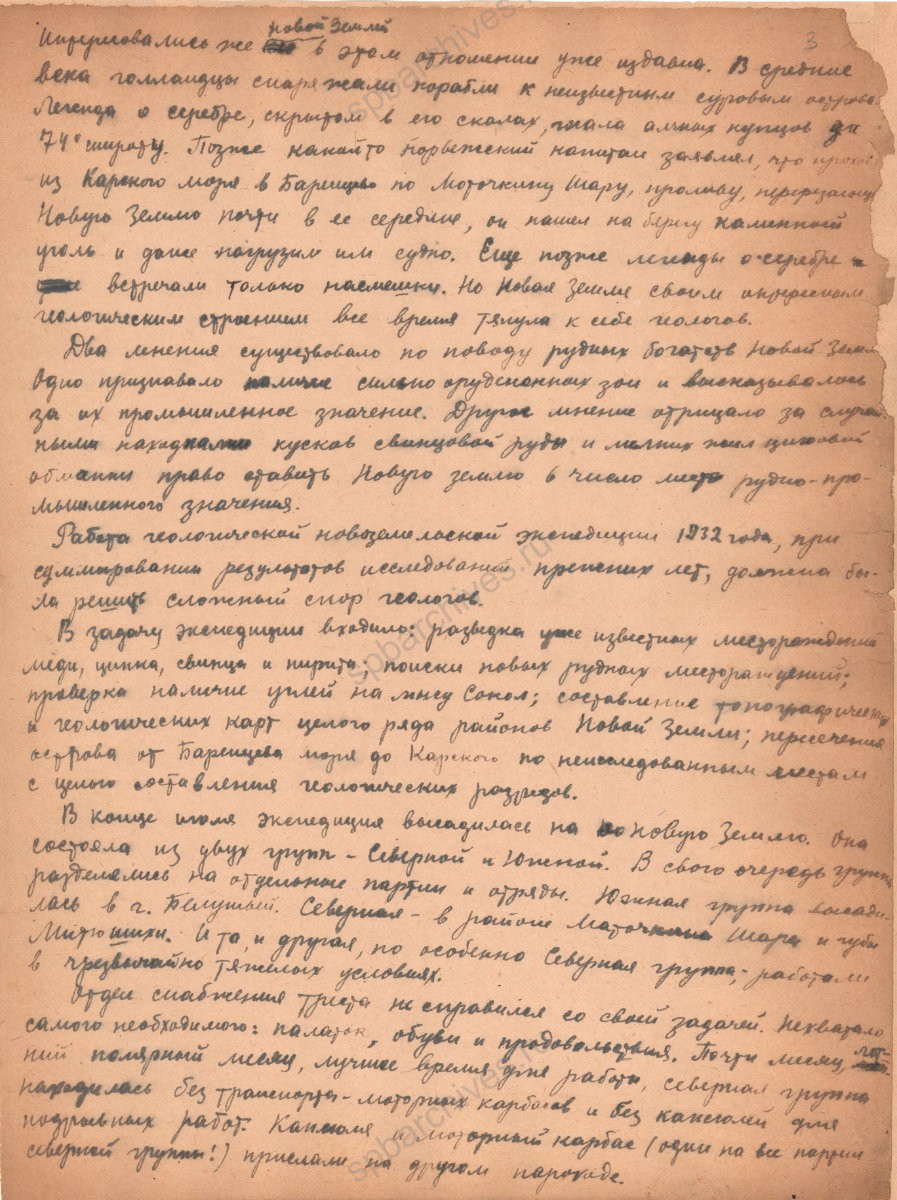 3
Новой Земли
Интересовались же в этом отношении уже издавна. В средние
века голландцы снаряжали корабли к неизвестным суровым острова
Легенда о серебре, скрытом в его скалах, гнала алчных купцов за
74° широту. Позже какой-то норвежский капитан заявлял, что
из Карского моря в Баренцево по Маточкину Шару, проливу,
Новую Землю почти в ее середине, он нашел на берегу каменный
уголь и даже нагрузил им судно. Еще позже легенды о серебре
встречали только насмешки. Но Новая Земля своим интересным
геологическим строением все время тянула к себе геологов.
Два мнения существовало по поводу рудных богатств Новой Земли
Одно признавало наличие сильно оруденных зон и высказывалось
за их промышленное значение. Другое мнение отрицало за случай-
ными находками кусков свинцовой руды и мелких жил цинковой
обманки право ставить Новую землю в число мест рудно-про-
мышленного значения.
Работа геологической новоземельской экспедиции 1932 года, при
суммировании результатов исследований прежних лет, должна бы-
ла решить сложный спор геологов.
В задачу экспедиции входило: разведка уже известных месторождений
меди, цинка, свинца и пирита; поиски новых рудных месторождений;
проверка наличие углей на мысу Сокол; составление топографических
и геологических карт целого ряда районов Новой Земли; пересечение
острова от Баренцева моря до Карского по неисследованным местам
с целью составления геологических разрезов.
В конце июля экспедиция высадилась на Новую Землю. Она
состояла из двух групп - Северной и Южной. В свою очередь группы
разделялись на отдельные партии и отряды. Южная группа высади-
лась в г. Белушьей. Северная - в районе Маточкина Шара и губы
Митюшихи. И та, и другая, но особенно Северная группа, работали
в чрезвычайно тяжелых условиях.
Отдел снабжения треста не справился со своей задачей. Нехватало
самого необходимого: палаток, обуви и продовольствия. Почти месяц, лет-
ний полярный месяц, лучшее время для работы, северная группа
находилась без транспорта - моторных карбасов и без капсюлей для
подрывных работ. Капсюля и моторный карбас (один на все партии
северной группы!) прислали на другом пароходе.
spbarchives.ru
spbarchives.ru
spbarchives.ru